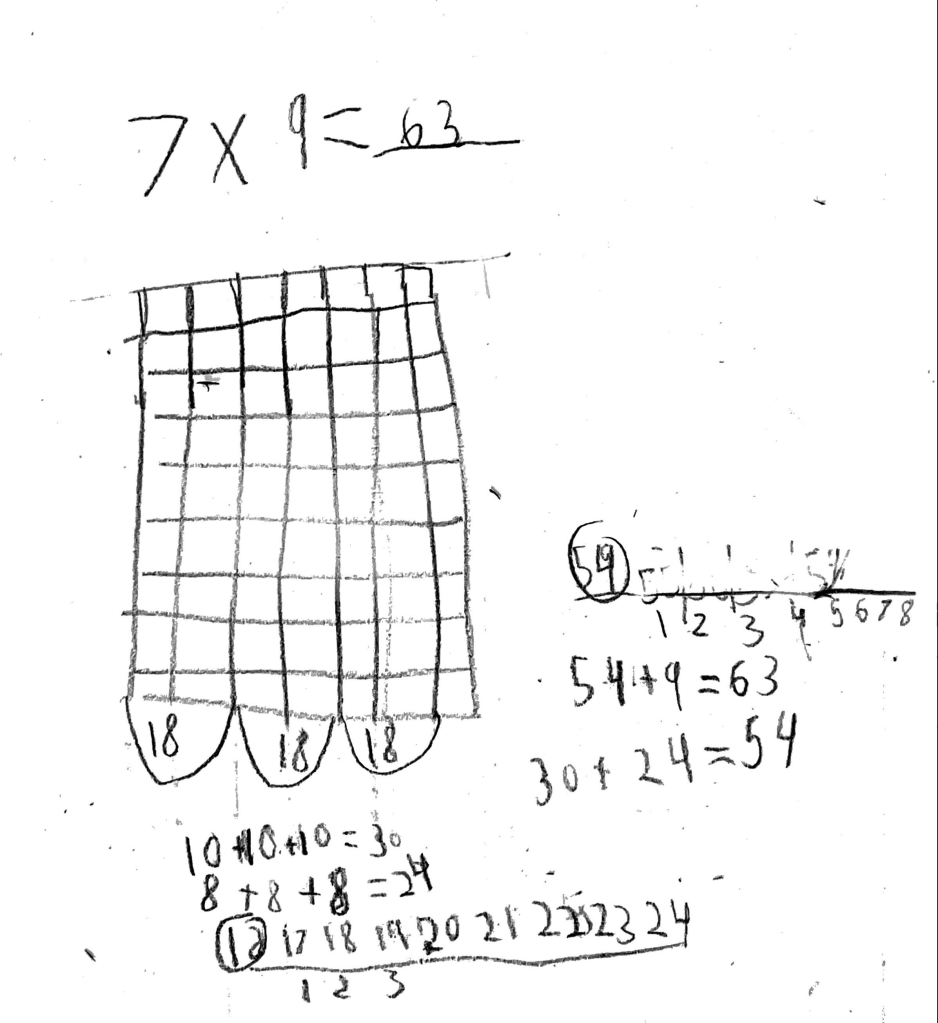 7 x 9 = 63
18 18 18
54
1 2 3 4 5 6 7 8
54+9=63
30+24=54
10+10+10=30
8+8+8=24
17 18 19 20 21 22 23 24
1 2 3